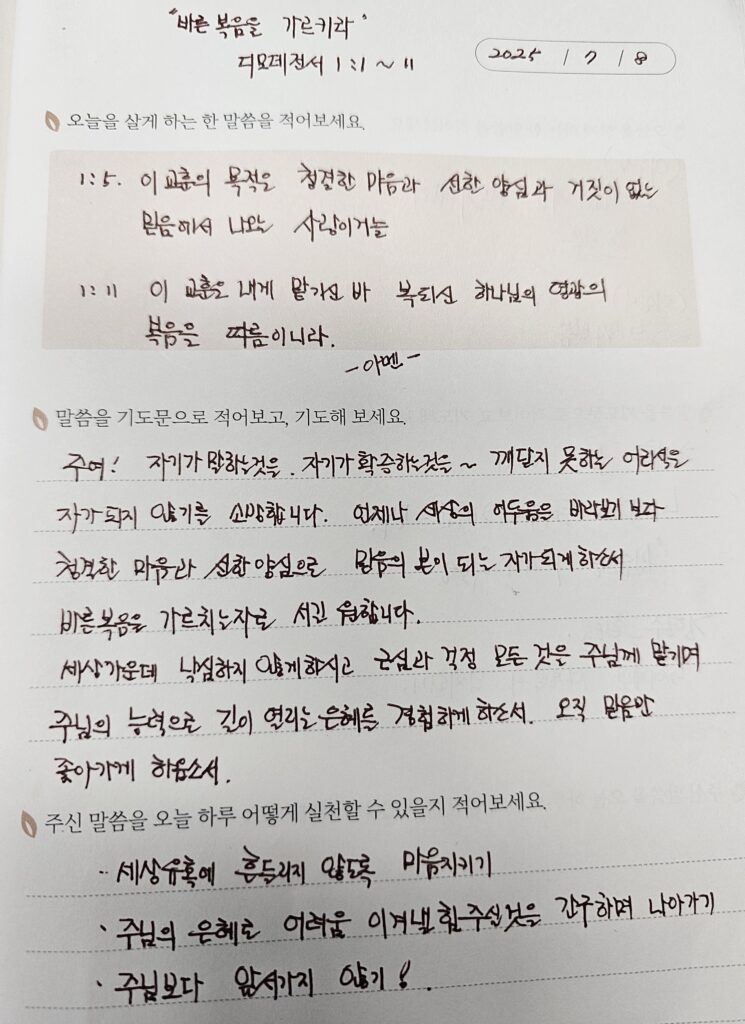 "바른 복음을 가르키라"
디모데전서 1:1 ~ 11
2025 / 7 / 8
오늘을 살게 하는 한 말씀을 적어보세요.
1:5. 이 교훈의 목적은 청결한 마음과 선한 양심과 거짓이 없는
믿음에서 나오는 사랑이거늘
1:11 이 교훈은 내게 맡기신 바 복되신 하나님의 영광의
복음을 따름이니라.
-아멘-
말씀을 기도문으로 적어보고, 기도해 보세요.
주여! 자기가 말하는것을. 자기가 확증하는것을 ~ 깨닫지 못하는 어리석은
자가 되지 않기를 소망합니다. 언제나 세상의 어두움을 바라보기 보다
청결한 마음과 선한 양심으로 믿음의 본이 되는 자가 되게 하소서
바른복음을 가르치는자로 서길 원합니다.
세상가운데 낙심하지 않게하시고 근심과 걱정 모든 것은 주님께 맡기며
주님의 능력으로 길이 열리는 은혜를 경험하게 하소서. 오직 믿음만
좇아가게 하옵소서.
주신 말씀을 오늘 하루 어떻게 실천할 수 있을지 적어보세요.
· 세상유혹에 흔들리지 않도록 마음지키기
· 주님의 은혜로 어려움 이겨낼 힘주실것을 간구하며 나아가기
· 주님보다 앞서가지 않기!.